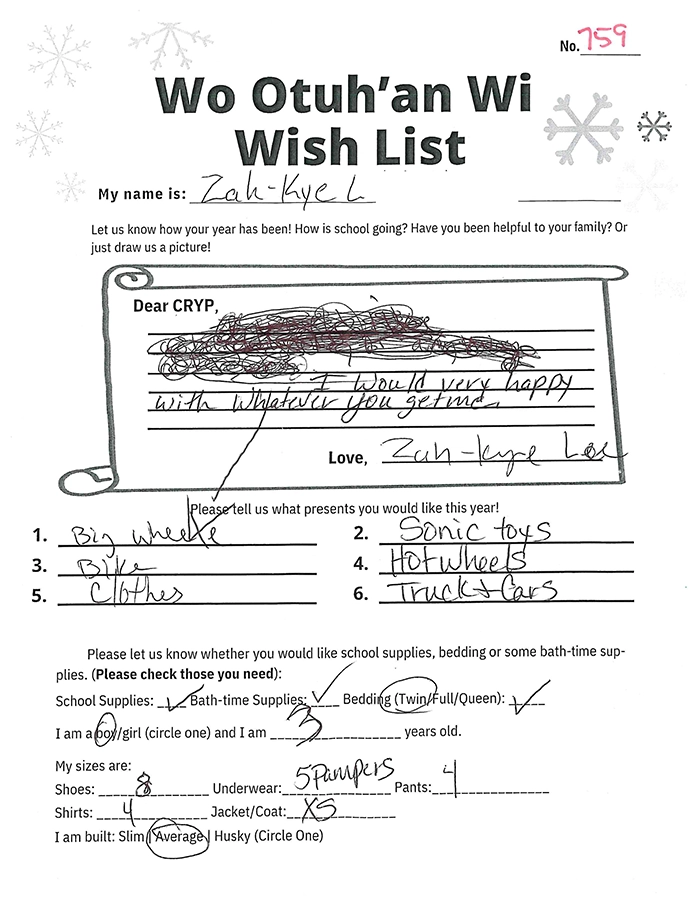 No. 759
Wo Otuh'an Wi
Wish List
My name is: Zah-Kye L
Let us know how your year has been! How is school going? Have you been helpful to your family? Or
just draw us a picture!
Dear CRYP,
I would very happy
with whatever you get me.
Love, Zah-kye Lee
Please tell us what presents you would like this year!
1. Big wheele
2. Sonic toys
3. Bike
4. Hot wheels
5. Clothes
6. Truck + Cars
Please let us know whether you would like school supplies, bedding or some bath-time sup-
plies. (Please check those you need):
School Supplies: ✓ Bath-time Supplies: ✓ Bedding (Twin/Full/Queen): ✓
I am a boy/girl (circle one) and I am 3 years old.
My sizes are:
Shoes: 8 Underwear: 5 Pampers Pants: 4
Shirts: 4 Jacket/Coat: XS
I am built: Slim | Average | Husky (Circle One)